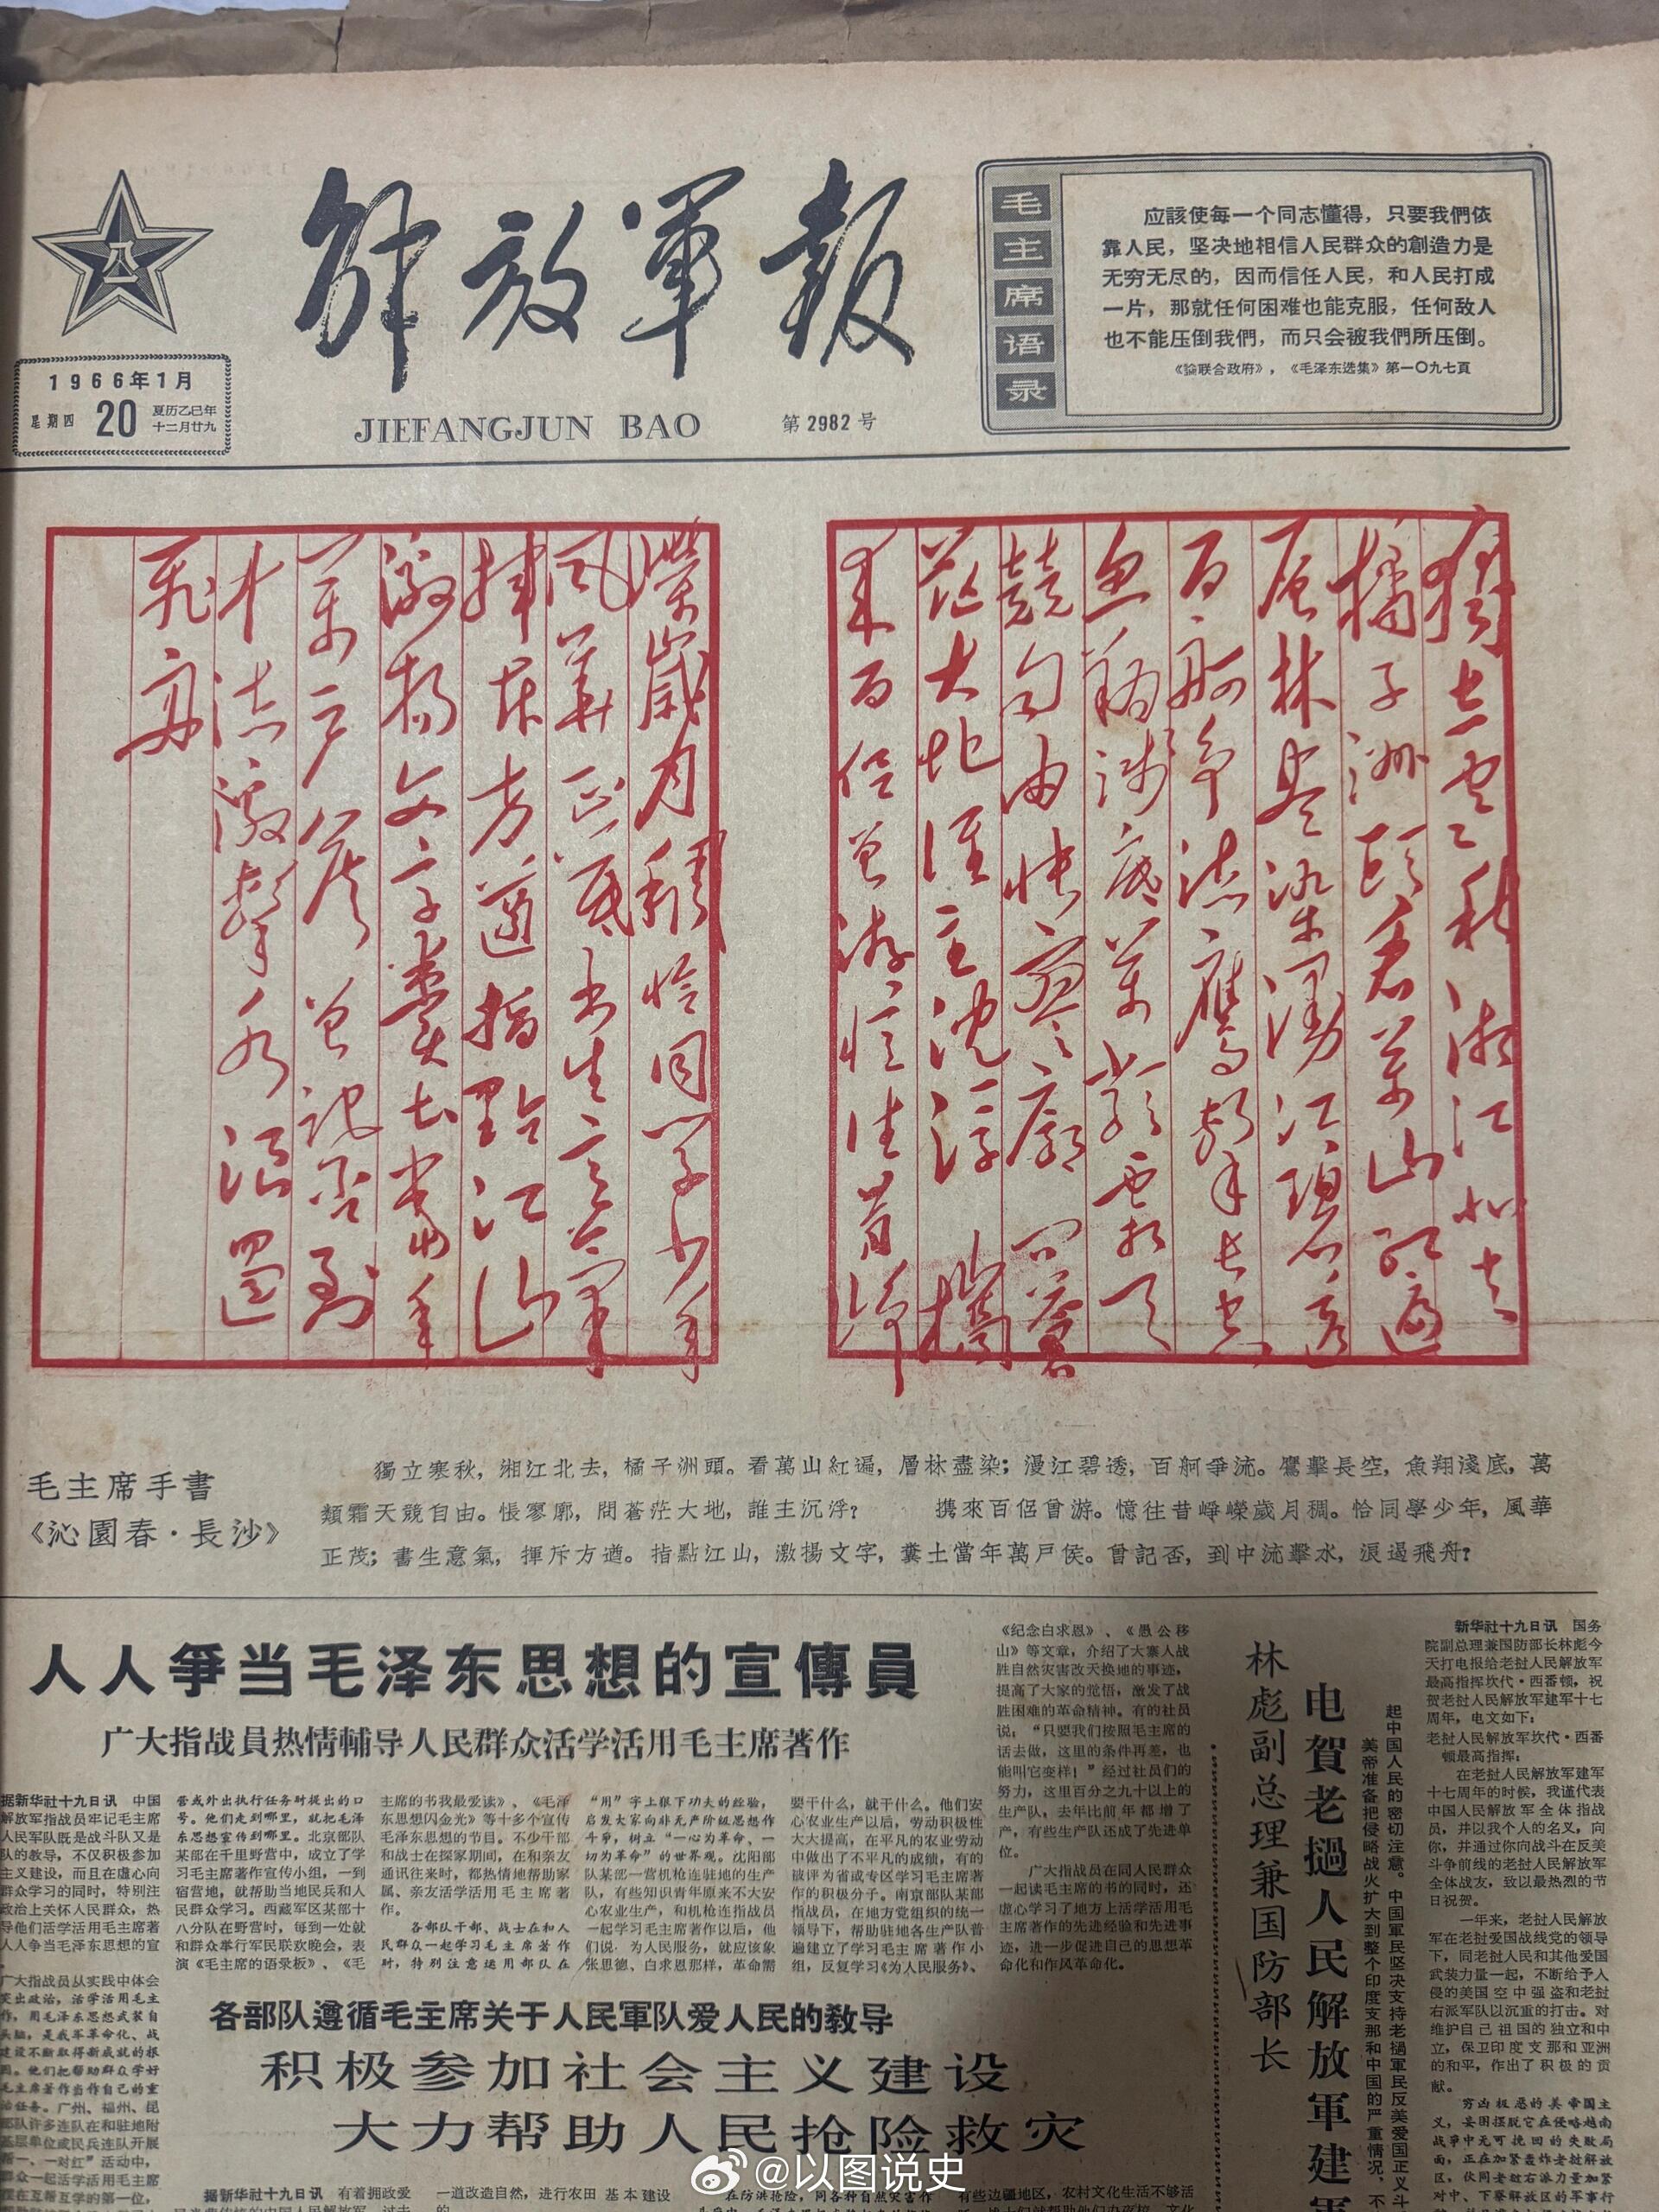 解放軍報
JIEFANGJUN BAO
第2982号
1966年1月
星期四
20
夏历乙巳年
十二月廿九
毛主席语录
应該使每一个同志懂得，只要我們依
靠人民，坚决地相信人民群众的創造力是
无穷无尽的，因而信任人民，和人民打成
一片，那就任何困难也能克服，任何敌人
也不能压倒我們，而只会被我們所压倒。
《論联合政府》，《毛泽东选集》第一〇九七頁
毛主席手書
《沁園春·長沙》
獨立寒秋，湘江北去，橘子洲頭。看萬山紅遍，層林盡染；漫江碧透，百舸爭流。鷹擊長空，魚翔淺底，萬
類霜天競自由。悵寥廓，問蒼茫大地，誰主沉浮？　　攜來百侶曾游。憶往昔崢嶸歲月稠。恰同學少年，風華
正茂；書生意氣，揮斥方遒。指點江山，激揚文字，糞土當年萬戶侯。曾記否，到中流擊水，浪遏飛舟？
人人爭当毛泽东思想的宣傳員
广大指战員热情輔导人民群众活学活用毛主席著作
据新华社十九日讯　中国
解放军指战员牢记毛主席
人民军队既是战斗队又是
队的教导，不仅积极参加
主义建设，而且在虚心向
群众学习的同时，特别注
政治上关怀人民群众，热
导他们活学活用毛主席著
人人争当毛泽东思想的宣
广大指战员从实践中体会
突出政治，活学活用毛主
作，用毛泽东思想武装自
头脑，是我军革命化、战
建设不断取得新成就的根
因。他们把帮助群众学好
毛主席著作当作自己的重
治任务。广州、福州、昆
部队许多连队在和驻地附
基层单位或民兵连队开展
帮一、一对红”活动中，
群众一起活学活用毛主席
摆在互帮互学的第一位，
营或外出执行任务时提出的口
号。他们走到哪里，就把毛泽
东思想宣传到哪里。北京部队
某部在千里野营中，成立了学
习毛主席著作宣传小组，一到
宿营地，就帮助当地民兵和人
民群众学习。西藏军区某部十
八分队在野营时，每到一处就
和群众举行军民联欢晚会，表
演《毛主席的语录板》、《毛
主席的书我最爱读》、《毛泽
东思想闪金光》等十多个宣传
毛泽东思想的节目。不少干部
和战士在探家期间，在和亲友
通讯往来时，都热情地帮助家
属、亲友活学活用毛主席著
作。
各部队干部、战士在和人
民群众一起学习毛主席著作
时，特别注意运用部队在
“用”字上狠下功夫的经验，
启发大家向非无产阶级思想作
斗争，树立“一心为革命、一
切为革命”的世界观。沈阳部
队某部一营机枪连驻地的生产
队，有些知识青年原来不大安
心农业生产，和机枪连指战员
一起学习毛主席著作以后，他
们说：为人民服务，就应该象
张思德、白求恩那样，革命需
要干什么，就干什么。他们安
心农业生产以后，劳动积极性
大大提高，在平凡的农业劳动
中做出了不平凡的成绩，有的
被评为省或专区学习毛主席著
作的积极分子。南京部队某部
指战员，在地方党组织的统一
领导下，帮助驻地各生产队普
遍建立了学习毛主席著作小
组，反复学习《为人民服务》、
《纪念白求恩》、《愚公移
山》等文章，介绍了大寨人战
胜自然灾害改天换地的事迹，
提高了大家的觉悟，激发了战
胜困难的革命精神。有的社员
说：“只要我们按照毛主席的
话去做，这里的条件再差，也
能叫它变样！”经过社员们的
努力，这里百分之九十以上的
生产队，去年比前年都增了
产，有些生产队还成了先进单
位。
广大指战员在同人民群众
一起读毛主席的书的同时，还
虚心学习了地方上活学活用毛
主席著作的先进经验和先进事
迹，进一步促进自己的思想革
命化和作风革命化。
各部队遵循毛主席关于人民軍队爱人民的教导
积极参加社会主义建设
大力帮助人民抢险救灾
据新华社十九日讯　有着拥政爱
一道改造自然，进行农田基本建设
林彪副总理兼国防部长
电賀老撾人民解放軍建軍
起中国人民的密切注意。中国軍民坚决支持老撾軍民反美爱国正义斗
美帝准备把侵略战火扩大到整个印度支那和中国的严重情况，不
新华社十九日讯　国务
院副总理兼国防部长林彪今
天打电报给老挝人民解放军
最高指挥坎代·西番顿，祝
贺老挝人民解放军建军十七
周年，电文如下：
老挝人民解放军坎代·西番
顿最高指挥：
在老挝人民解放军建军
十七周年的时候，我谨代表
中国人民解放军全体指战
员，并以我个人的名义，向
你，并通过你向战斗在反美
斗争前线的老挝人民解放军
全体战友，致以最热烈的节
日祝贺。
一年来，老挝人民解放
军在老挝爱国战线党的领导
下，同老挝人民和其他爱国
武装力量一起，不断给予入
侵的美国空中强盗和老挝
右派军队以沉重的打击。对
维护自己祖国的独立和中
立，保卫印度支那和亚洲
的和平，作出了积极的贡
献。
穷凶极恶的美帝国主
义，妄图摆脱它在侵略越南
战争中无可挽回的失败局
面，正在加紧轰炸老挝解放
区，伙同老挝右派力量加紧
@以图说史